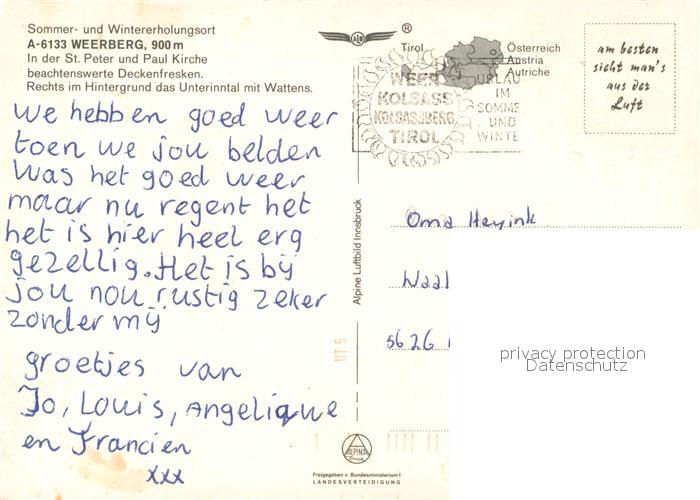 Sommer- und Wintererholungsort
A-6133 WEERBERG, 900 m
In der St. Peter und Paul Kirche
beachtenswerte Deckenfresken.
Rechts im Hintergrund das Unterinntal mit Wattens.
we hebben goed weer
toen we jou belden
was het goed weer
maar nu regent het
het is hier heel erg
gezellig. Het is bij
jou nou rustig zeker
zonder mij
groetjes van
Jo, Louis, Angelique
en Francien
xxx
®
Tirol
Österreich
Austria
Autriche
WEER
KOLSASS
KOLSASSBERG
TIROL
URLAU
IM
SOMME
UND
WINTE
am besten
sieht man's
aus der
Luft
Alpine Luftbild Innsbruck
UT 5
Oma Heyink
Waal
5626
privacy protection
Datenschutz
ALPINA
Druck
Freigegeben v. Bundesministerium f.
LANDESVERTEIDIGUNG